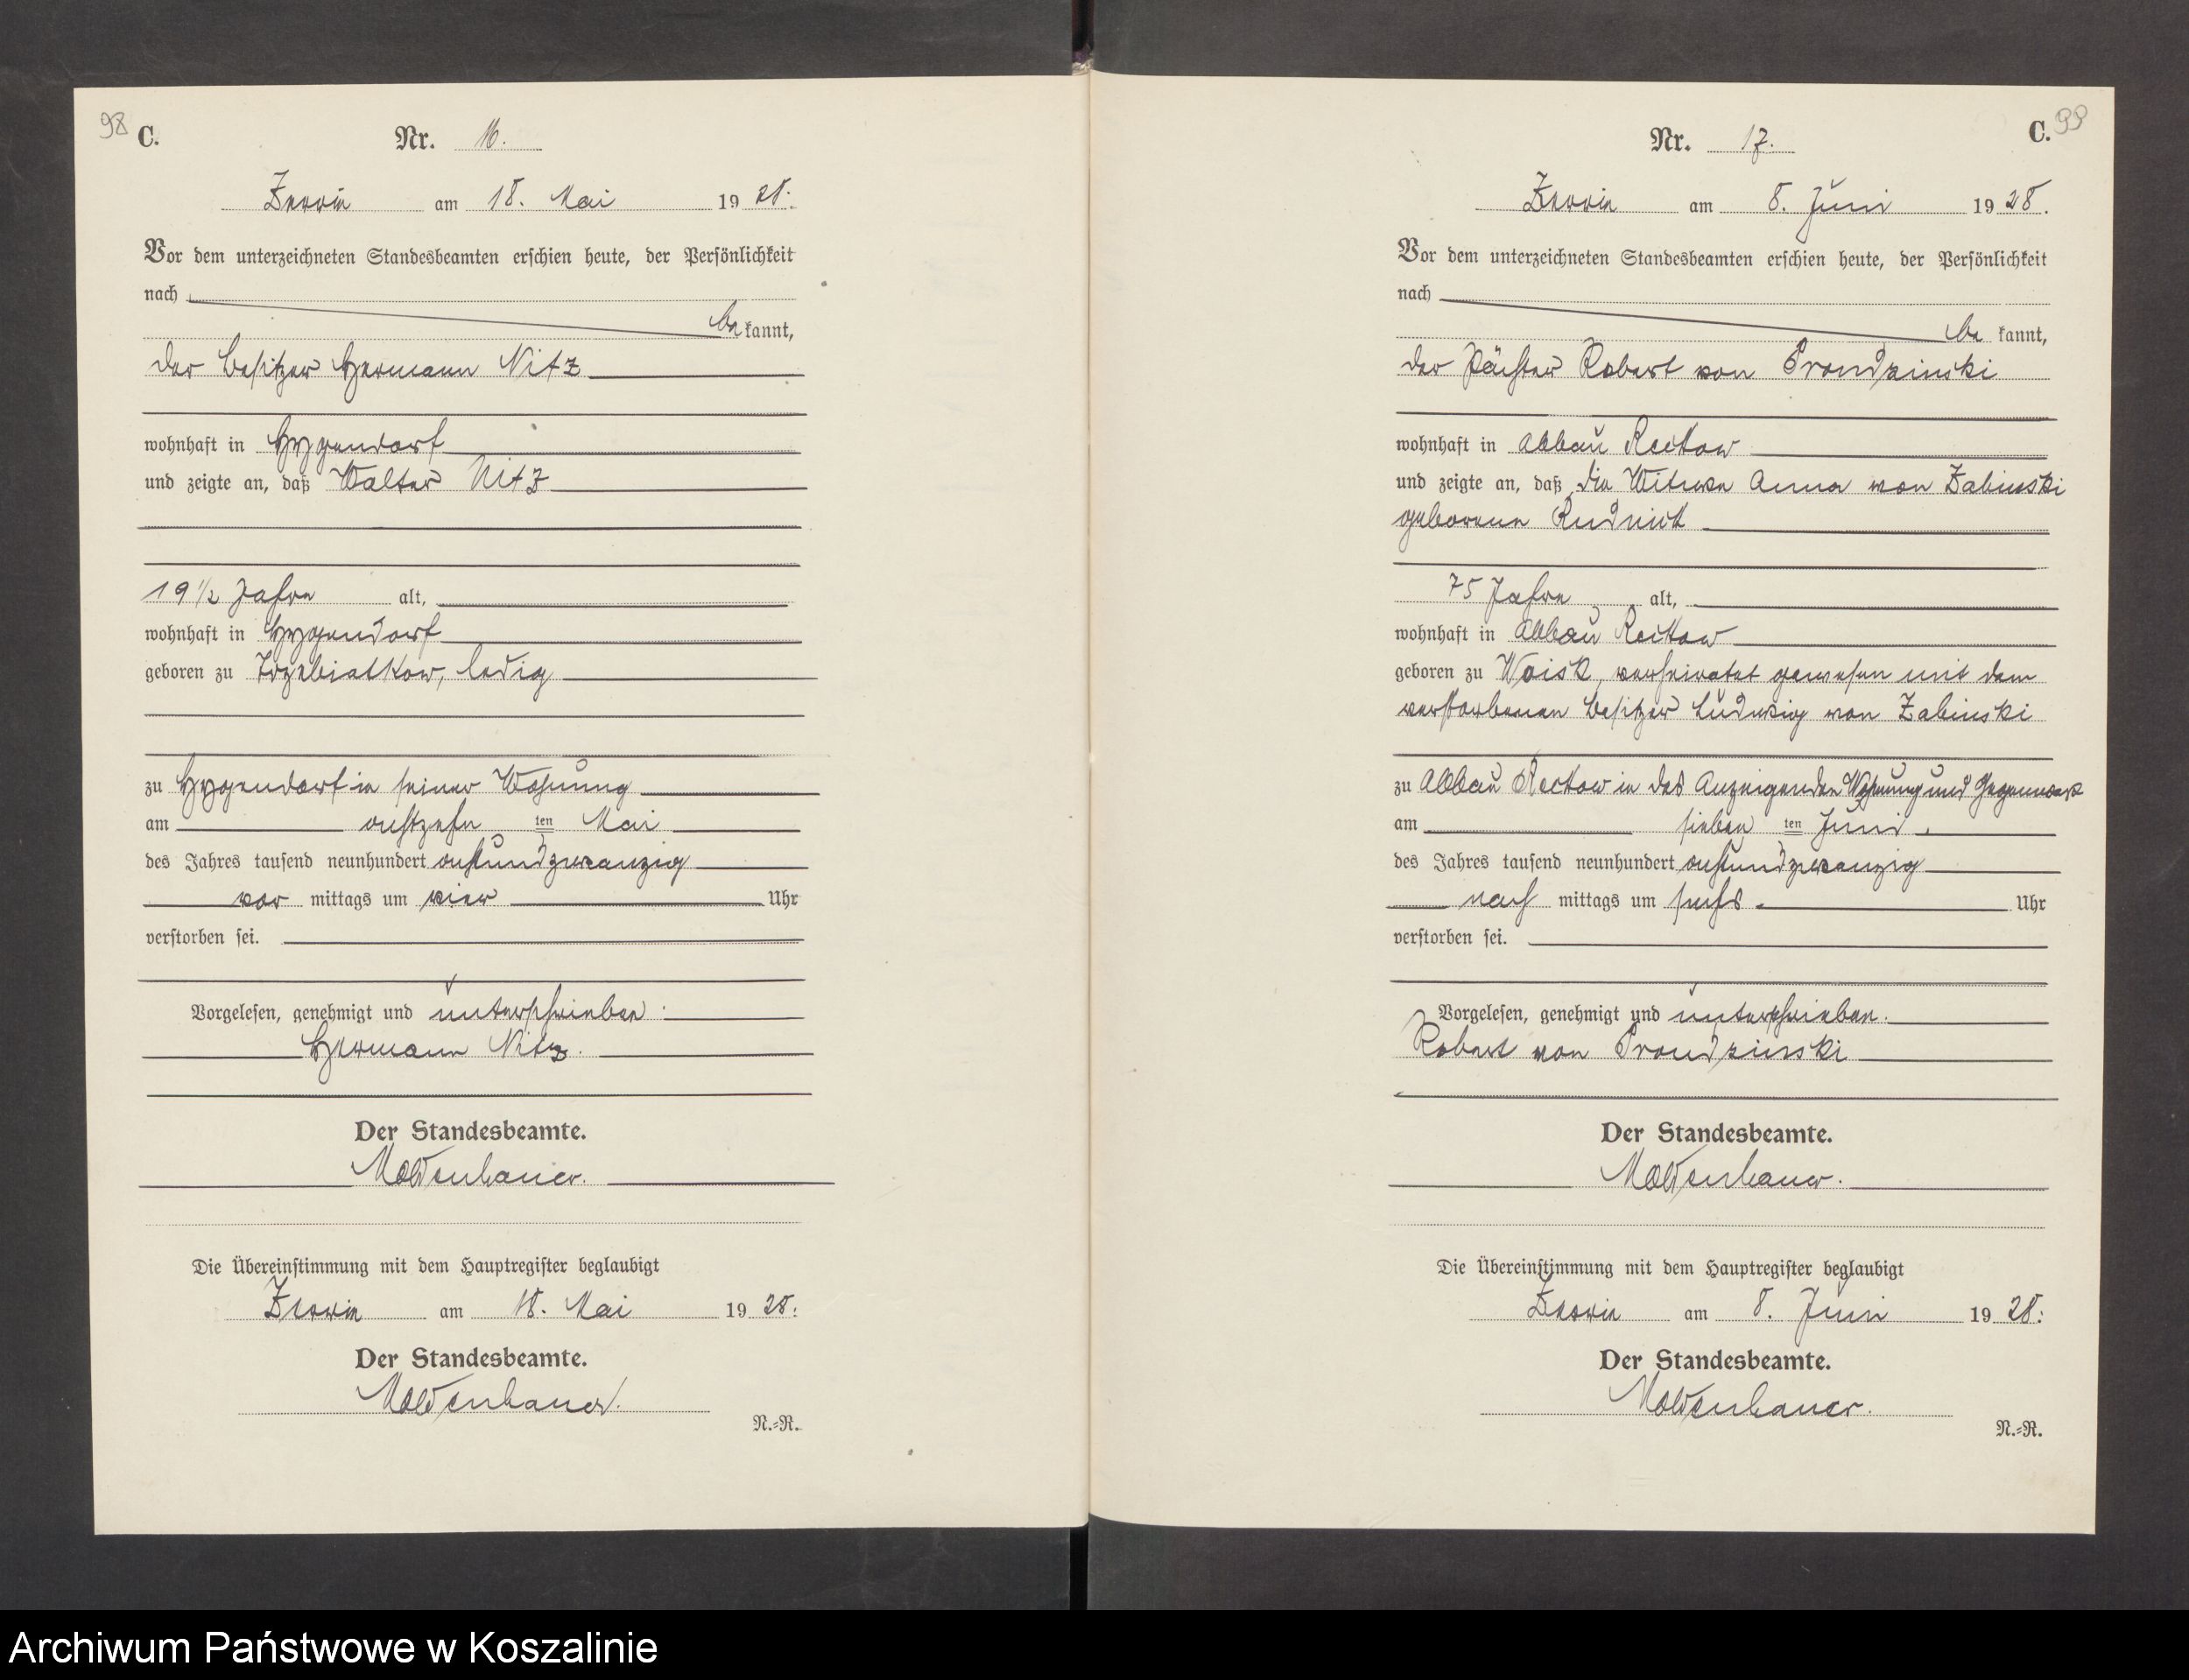 98
C.
Nr. 16.
Zerrin am 18. Mai 1928.
Vor dem unterzeichneten Standesbeamten erschien heute, der Persönlichkeit
nach
be kannt,
der Besitzer Hermann Nitz
wohnhaft in Hygendorf
und zeigte an, daß Walter Nitz
19 1/2 Jahre alt,
wohnhaft in Hygendorf
geboren zu Trzebiatkow, ledig
zu Hygendorf in seiner Wohnung
am achtzehn ten Mai
des Jahres tausend neunhundert achtundzwanzig
vor mittags um vier Uhr
verstorben sei.
Vorgelesen, genehmigt und unterschrieben:
Hermann Nitz.
Der Standesbeamte.
Moldenhauer.
Die Übereinstimmung mit dem Hauptregister beglaubigt
Zerrin am 18. Mai 1928.
Der Standesbeamte.
Moldenhauer.
N.=R.
99
C.
Nr. 17.
Zerrin am 8. Juni 1928.
Vor dem unterzeichneten Standesbeamten erschien heute, der Persönlichkeit
nach
be kannt,
der Pächter Robert von Prondzinski
wohnhaft in Abbau Reckow
und zeigte an, daß die Witwe Anna von Zabinski
geborene Rudnick
75 Jahre alt,
wohnhaft in Abbau Reckow
geboren zu Woisk, verheiratet gewesen mit dem
verstorbenen Besitzer Ludwig von Zabinski
zu Abbau Reckow in des Anzeigenden Wohnung und Gegenwart
am sieben ten Juni
des Jahres tausend neunhundert achtundzwanzig
nach mittags um sechs Uhr
verstorben sei.
Vorgelesen, genehmigt und unterschrieben.
Robert von Prondzinski
Der Standesbeamte.
Moldenhauer.
Die Übereinstimmung mit dem Hauptregister beglaubigt
Zerrin am 8. Juni 1928.
Der Standesbeamte.
Moldenhauer.
N.=R.
Archiwum Państwowe w Koszalinie